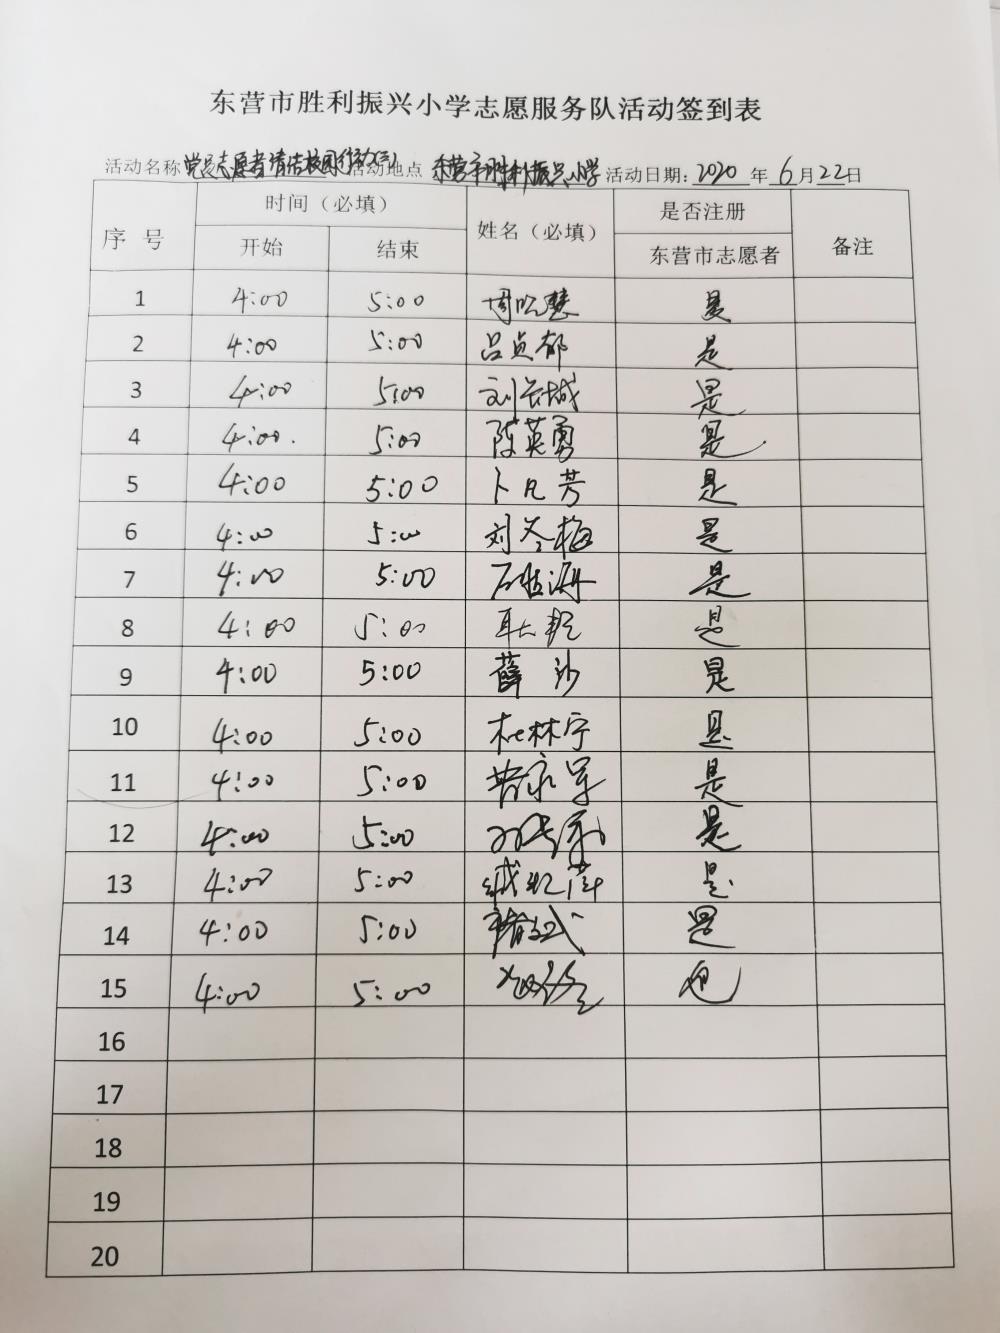 东营市胜利振兴小学志愿服务队活动签到表
活动名称 党员志愿者清洁校园行动(三) 活动地点 东营市胜利振兴小学 活动日期: 2020 年 6 月 22 日
序号 时间（必填） 姓名（必填） 是否注册 备注
开始 结束 东营市志愿者
1 4:00 5:00 是
2 4:00 5:00 吕贞郁 是
3 4:00 5:00 刘长城 是
4 4:00. 5:00 陈英勇 是
5 4:00 5:00 卜凡芳 是
6 4:00 5:00 刘冬梅 是
7 4:00 5:00 是
8 4:00 5:00 是
9 4:00 5:00 薛沙 是
10 4:00 5:00 杜林宁 是
11 4:00 5:00 是
12 4:00 5:00 是
13 4:00 5:00 是
14 4:00 5:00 是
15 4:00 5:00
16
17
18
19
20